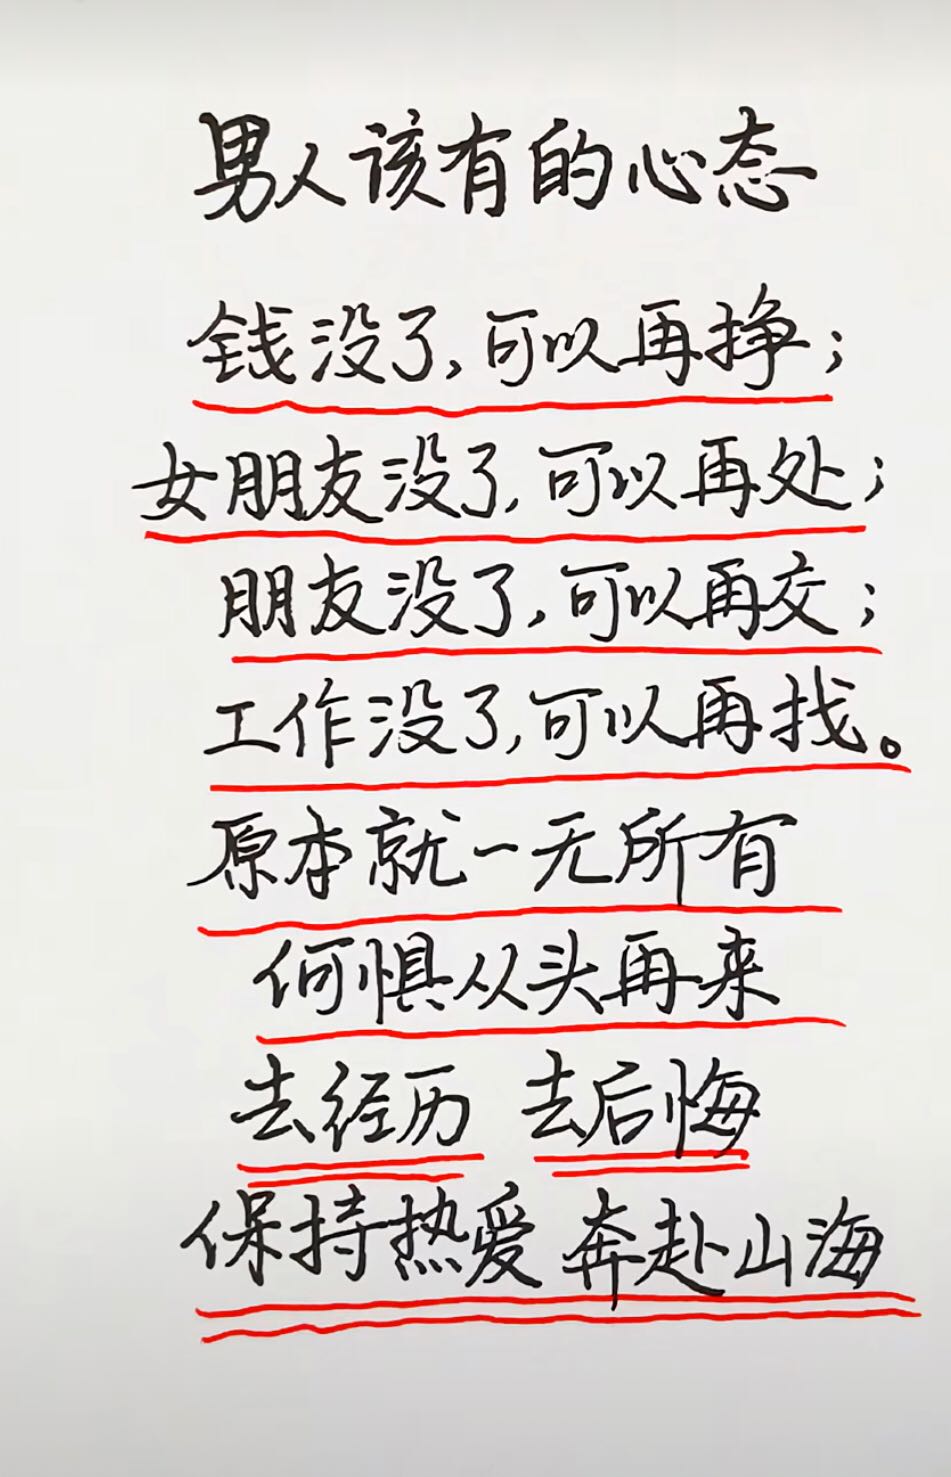 男人该有的心态
钱没了,可以再挣;
女朋友没了,可以再处;
朋友没了,可以再交;
工作没了,可以再找。
原本就一无所有
何惧从头再来
去经历 去后悔
保持热爱 奔赴山海